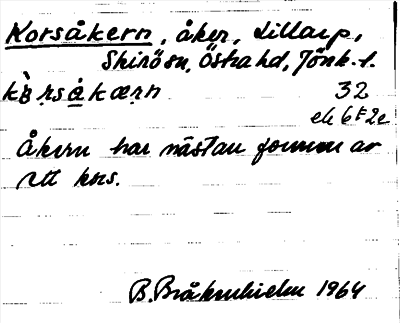 Korsåkern, åker, Lillarp,
Skirö sn, Östra hd, Jönk. l.
kò̀rsåkæṛn 32
ek 6 F 2e
Åkern har nästan formen av
ett kors.
B. Bråkenhielm 1964